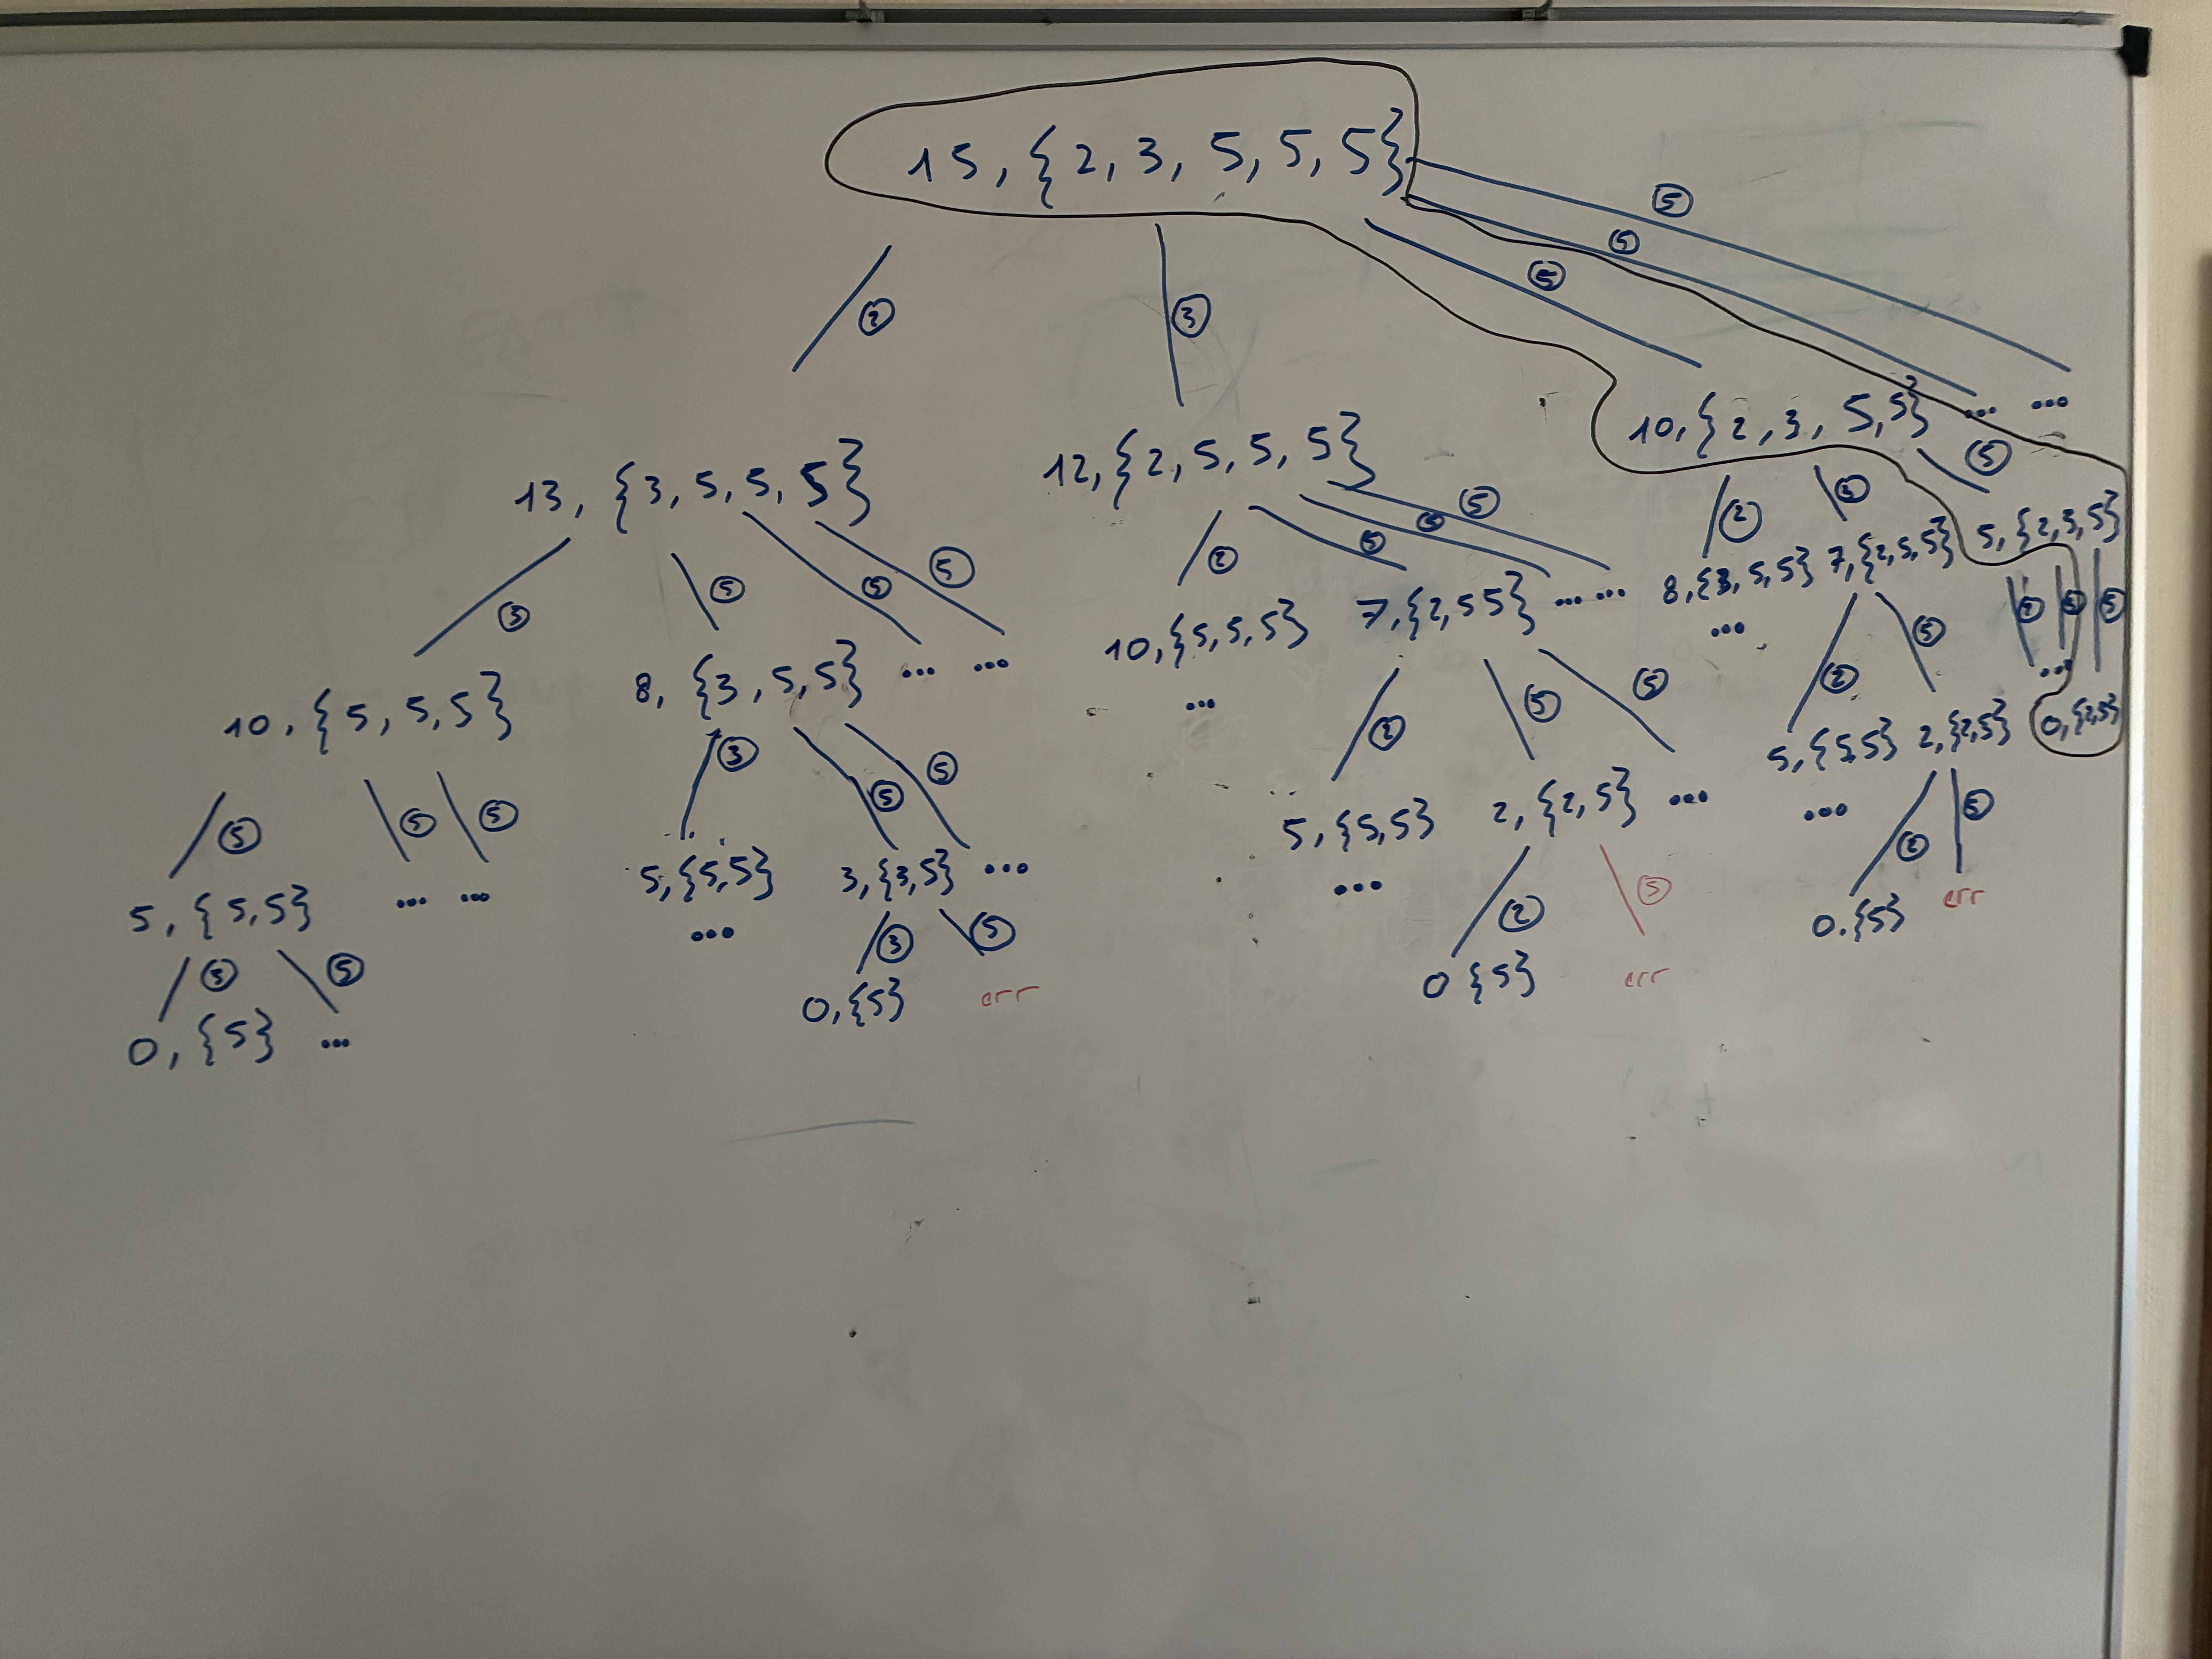 15, {2, 3, 5, 5, 5}
② ③ ⑤ ⑤ ⑤
13, {3, 5, 5, 5} 12, {2, 5, 5, 5} 10, {2, 3, 5, 5} ... ...
③ ⑤ ⑤ ⑤ ② ⑤ ⑤ ⑤ ② ③ ⑤
10, {5, 5, 5} 8, {3, 5, 5} ... ... 10, {5, 5, 5} 7, {2, 5 5} ... ... 8, {3, 5, 5} 7, {2, 5, 5} 5, {2, 3, 5}
... ...
⑤ ⑤ ⑤ ③ ⑤ ⑤ ② ⑤ ⑤ ② ⑤ ⑤
...
5, {5,5} ... ... 5, {5,5} 3, {3,5} ... 5, {5,5} 2, {2, 5} ... 5, {5,5} 2, {2,5} 0, {2,3}
... ... ...
⑤ ③ ⑤ ② ⑤ ② ⑤
0, {5} ... 0, {5} err 0 {5} err 0. {5} err